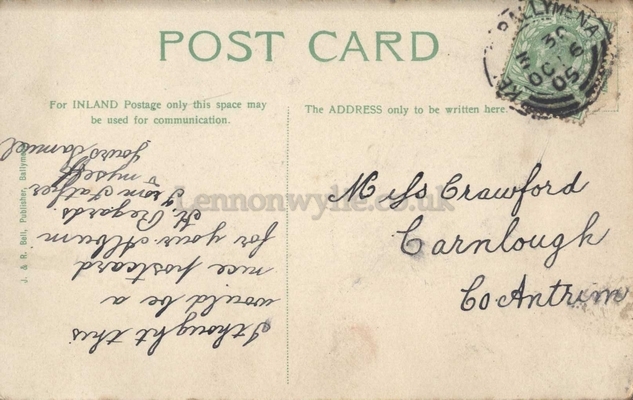 POST CARD
For INLAND Postage only this space may
be used for communication.
The ADDRESS only to be written here.
I thought this
would be a
nice postcard
for your Album
Kd Regards
from Father
& myself
Yours Samuel
Miss Crawford
Carnlough
Co Antrim
BALLYMENA
OC 6
05
J. & R. Bell, Publisher, Ballymena
Lennonwylie.co.uk